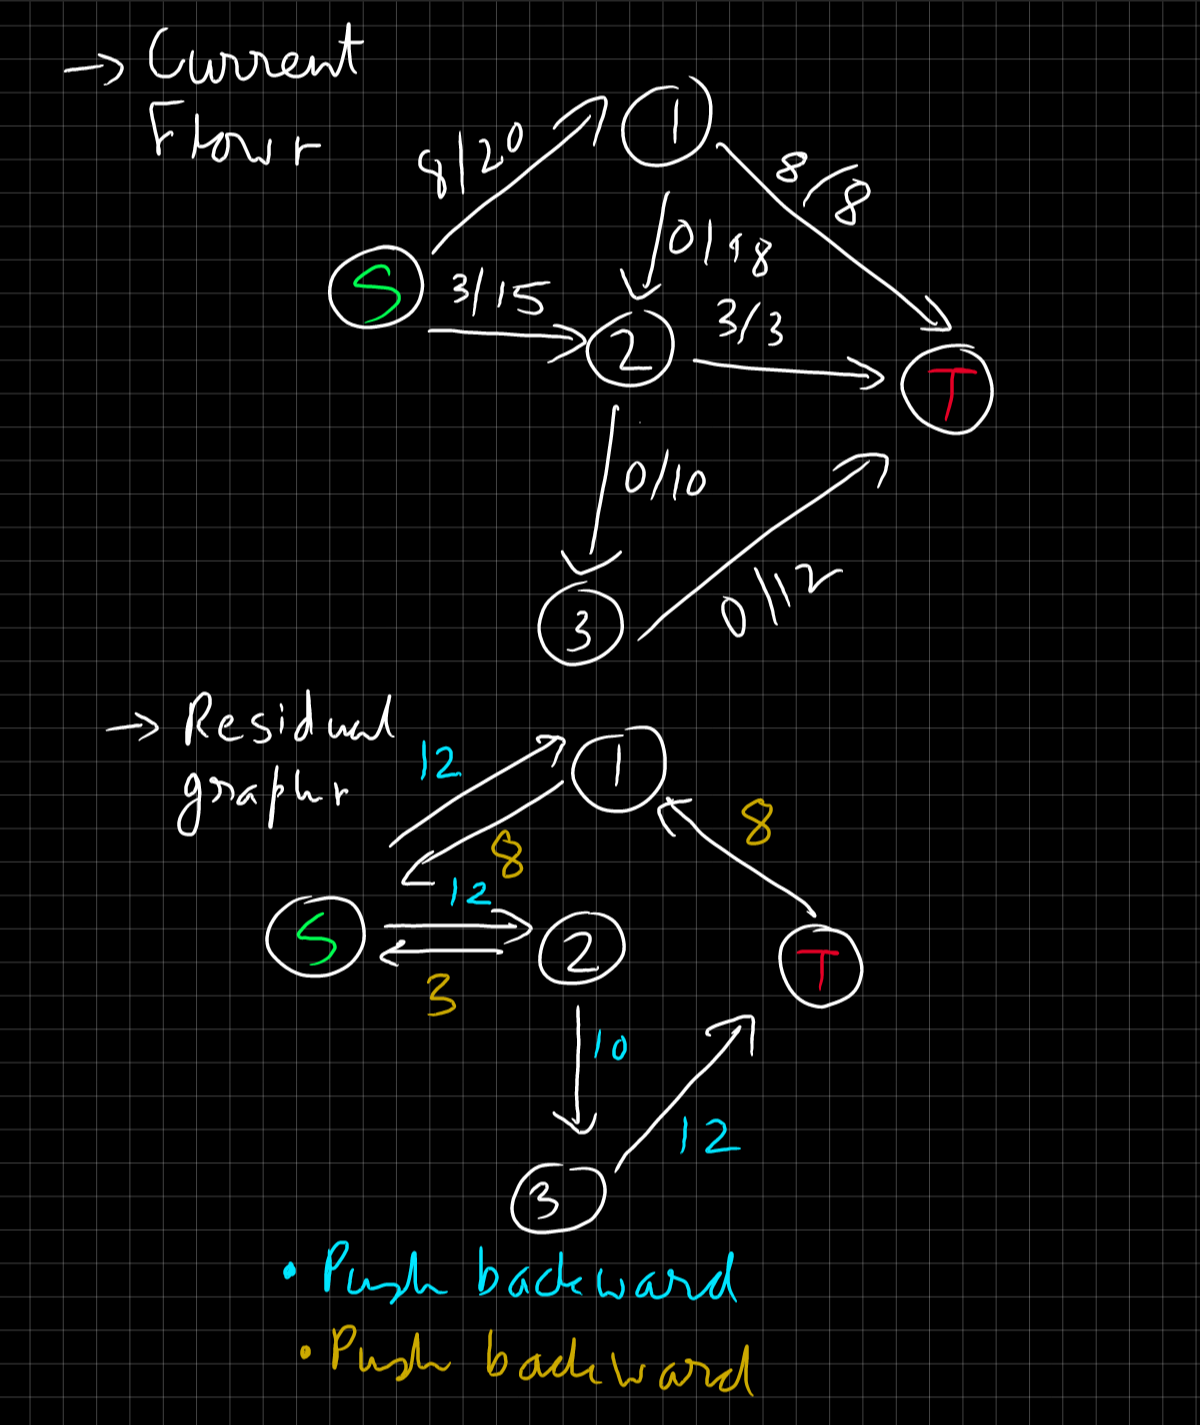 → Current
Flow r
1
8/20
8/8
0/18
S
3/15
2
3/3
T
0/10
3
0/12
→ Residual
graph r
12
1
8
8
12
S
2
T
3
10
12
3
• Push backward
• Push backward